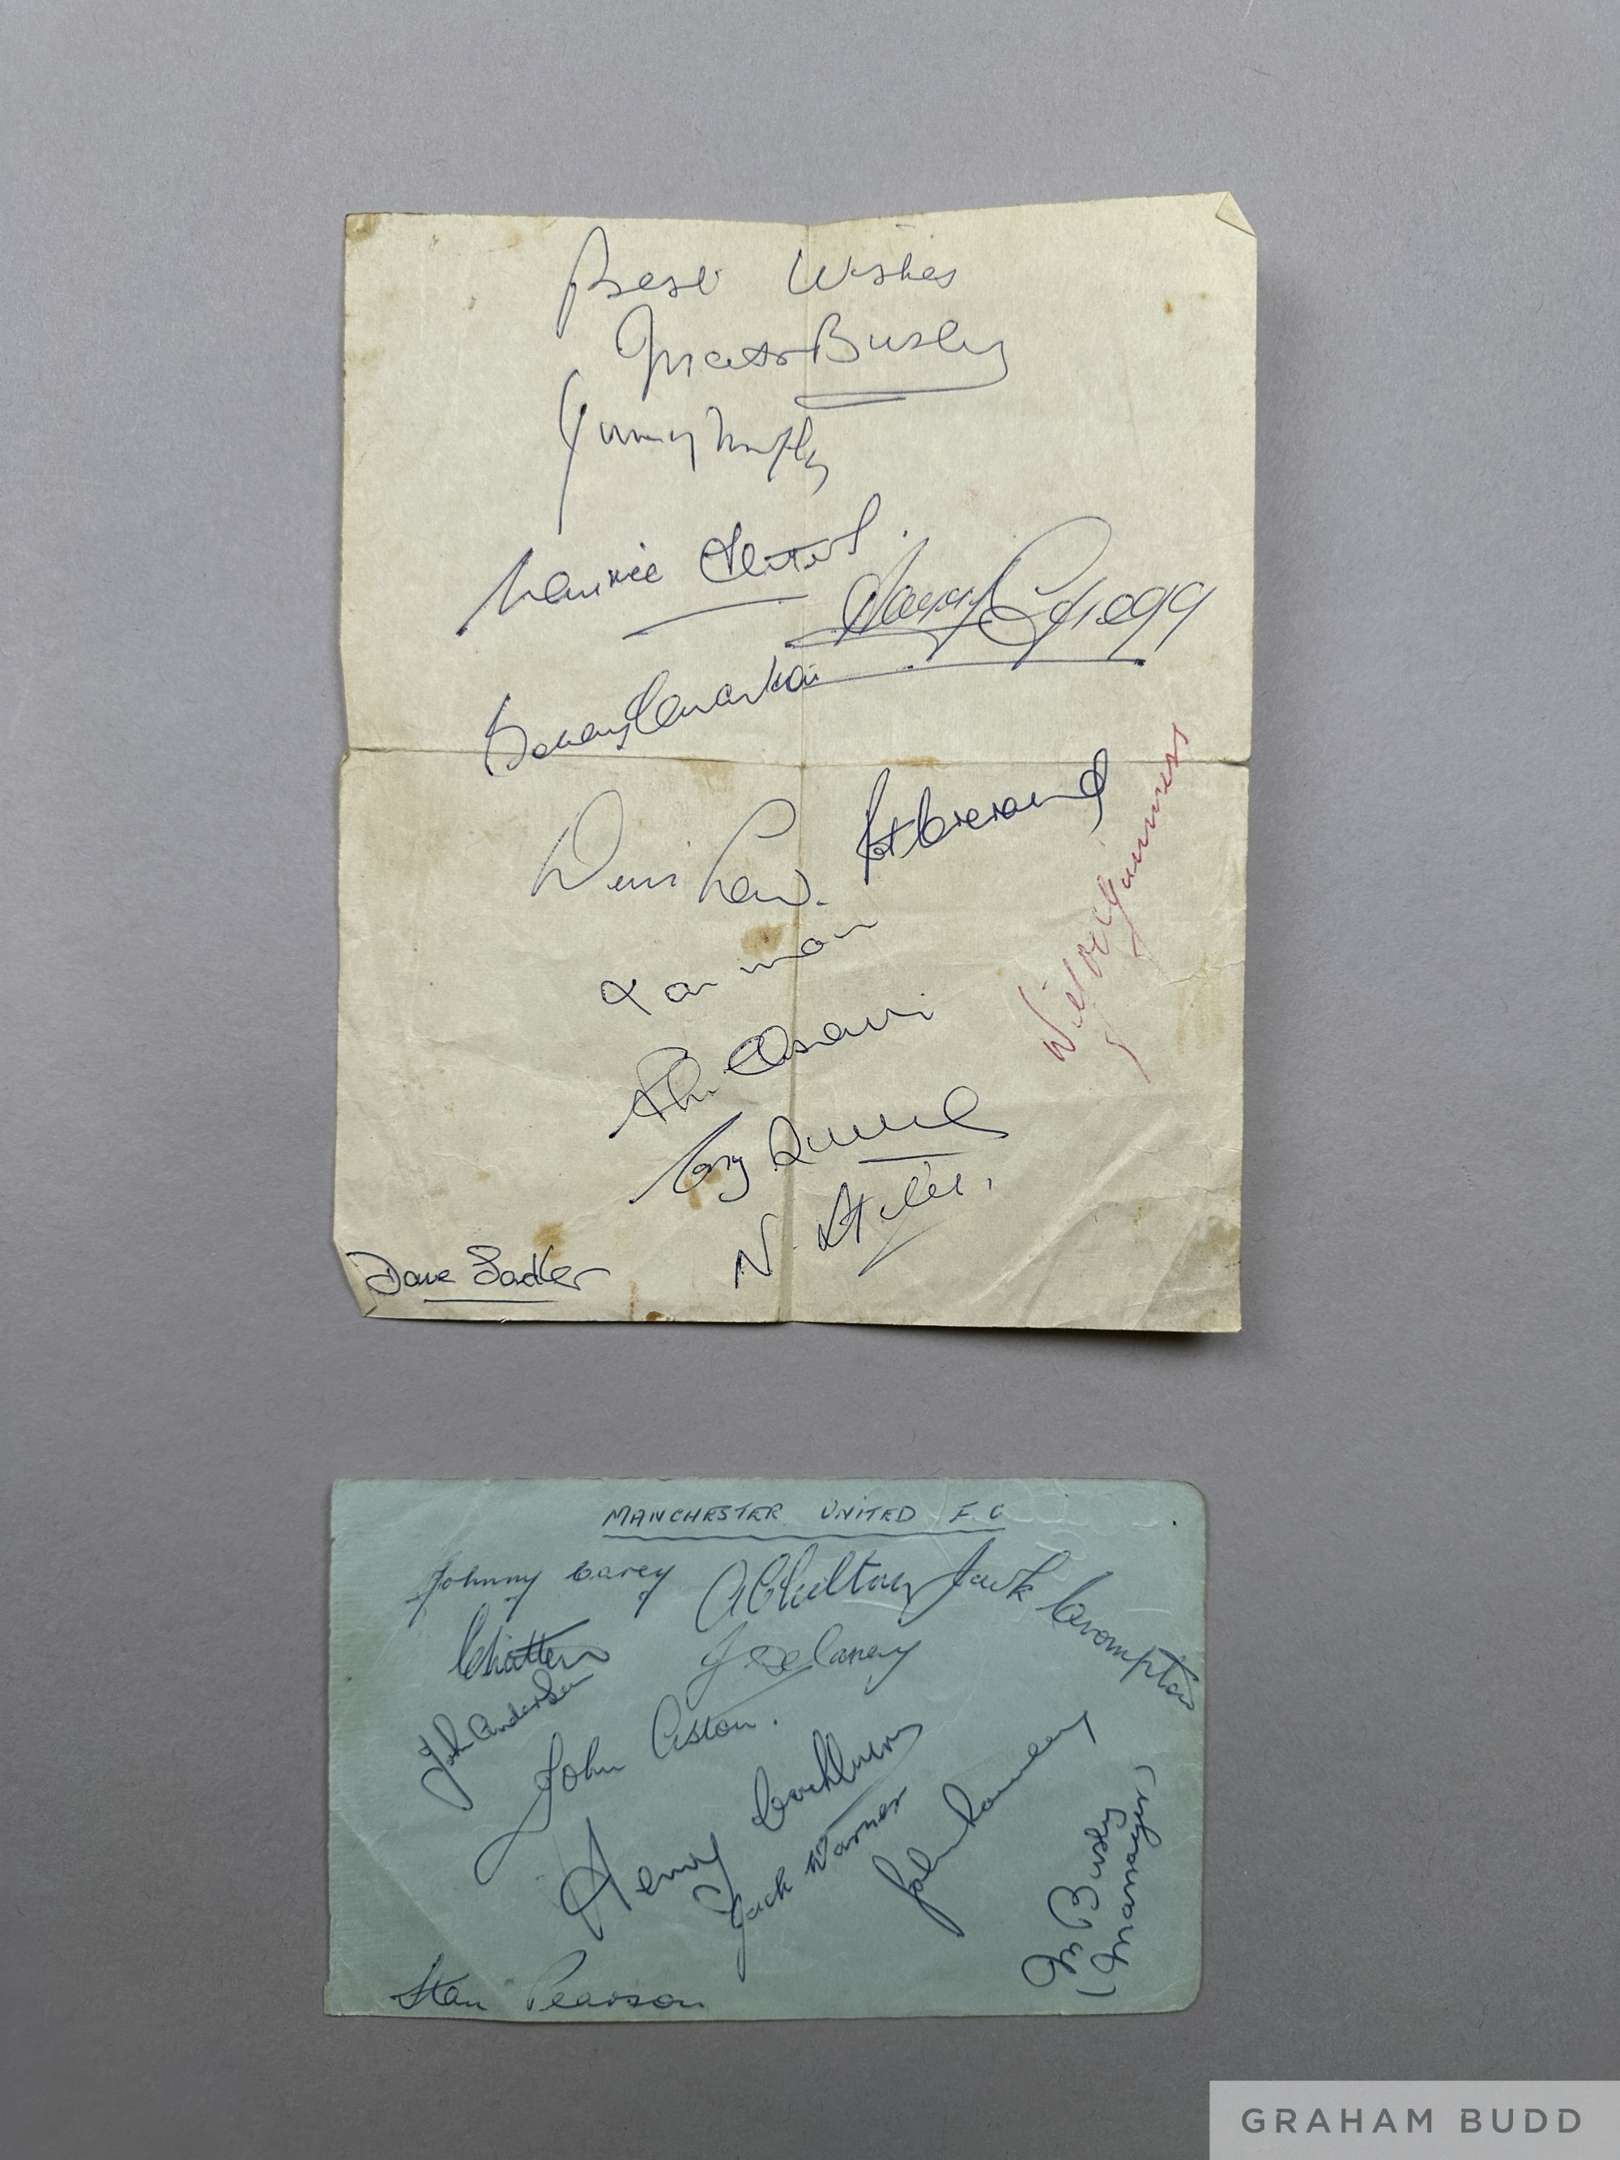 Best Wishes
Matt Busby
Jimmy Murphy
Maurice Setters.
Harry Gregg
Pat Crerand
Denis Law.
Wilf McGuinness
N. Stiles.
Dave Sadler
MANCHESTER UNITED F C
Johnny Carey
A Chilton
Jack Crompton
C Mitten
J Delaney
John Anderson
John Aston.
Henry Cockburn
Jack Warner
M Busby
(Manager)
Stan Pearson
GRAHAM BUDD